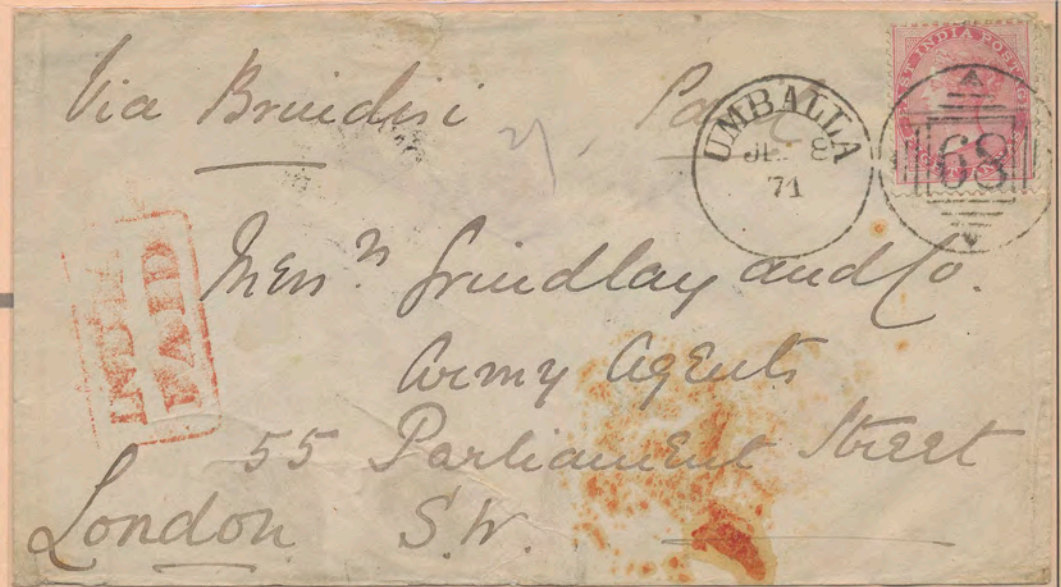 Via Brindisi Paid
UMBALLA
71
EAST INDIA POSTAGE
68
INDIA
PAID
Messrs. Grindlay and Co.
Army Agents
55 Parliament Street
London S.W.